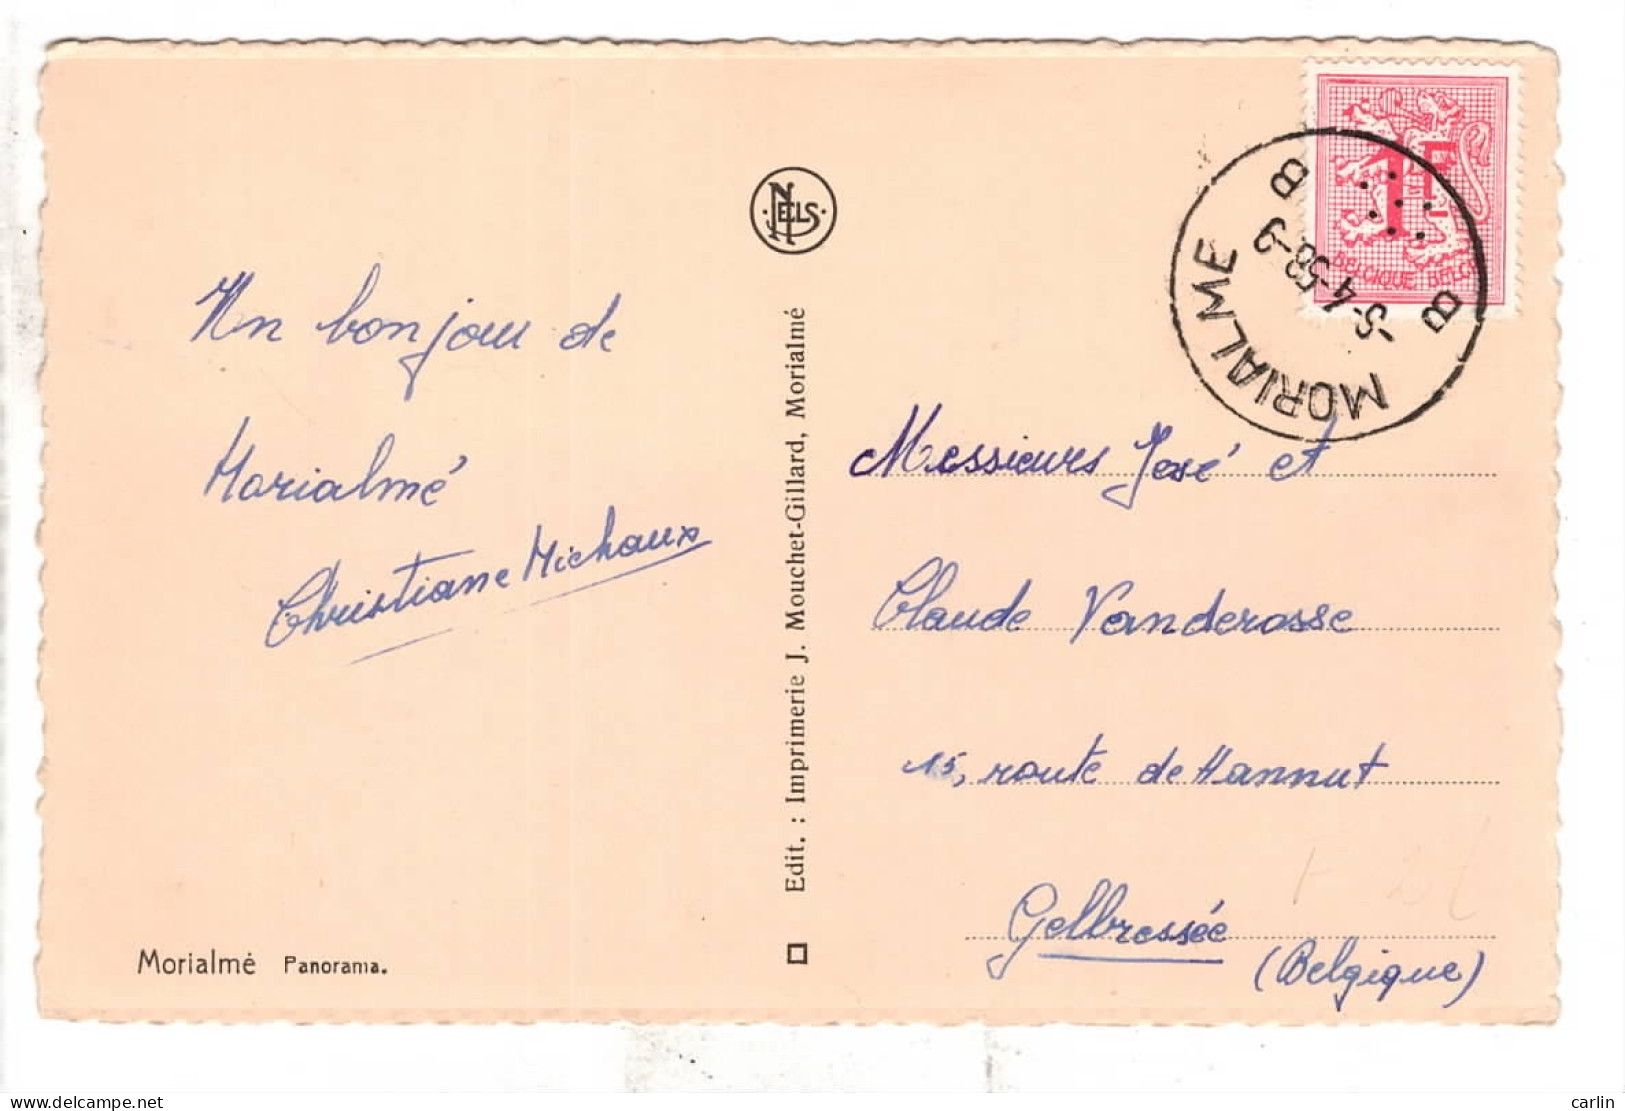 Un bonjour de
Morialmé
Christiane Michaux
Morialmé Panorama.
NELS
Edit. : Imprimerie J. Mouchet-Gillard, Morialmé
1F
BELGIQUE BELGIE
MORIALME
B B
-5-4-58-9
Messieurs José et
Claude Vanderosse
15, route de Hannut
Gelbressée
(Belgique)
www.delcampe.net
carlin